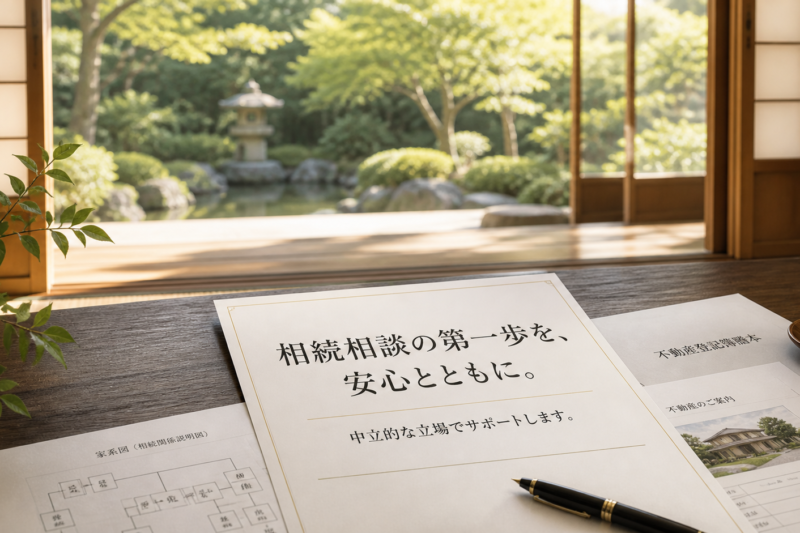 相続相談の第一歩を、
安心とともに。
中立的な立場でサポートします。
家系図（相続関係説明図）
不動産登記簿謄本
不動産のご案内